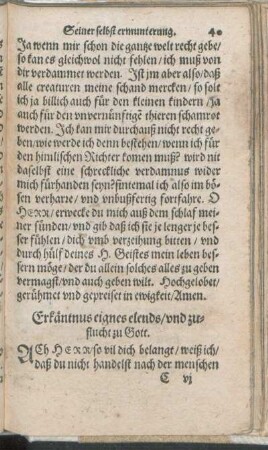 Seiner selbst ermunterung. 40
Ja wenn mir schon die gantze welt recht gebe/
so kan es gleichwol nicht fehlen/ich muß von
dir verdammet werden. Ist jm aber also/daß
alle creaturen meine schand mercken/so solt
ich ja billich auch für den kleinen kindern/Ja
auch für den unvernünfftigē thieren schamrot
werden. Ich kan mir durchauß nicht recht ge-
ben/wie werde ich denn bestehen/wenn ich für
den himlischen Richter komen muß? wird nit
daselbst eine schreckliche verdamnus wider
mich fürhanden seyn? sintemal ich also im bö-
sen verharre/vnd vnbußfertig fortfahre. O
HERR/erwecke du mich auß dem schlaf mei-
ner sünden/vnd gib daß ich sie je lenger je bes-
ser fühlen/dich vmb verzeihung bitten/vnd
durch hülf deines H. Geistes mein leben bes-
sern möge/der du allein solches alles zu geben
vermagst/vnd auch geben wilt. Hochgelobet/
gerühmet vnd gepreiset in ewigkeit/Amen.
Erkäntnus eignes elends/vnd zu-
flucht zu Gott.
ACh HERR/so vil dich belangt/weiß ich/
daß du nicht handelst nach der menschen
C vj